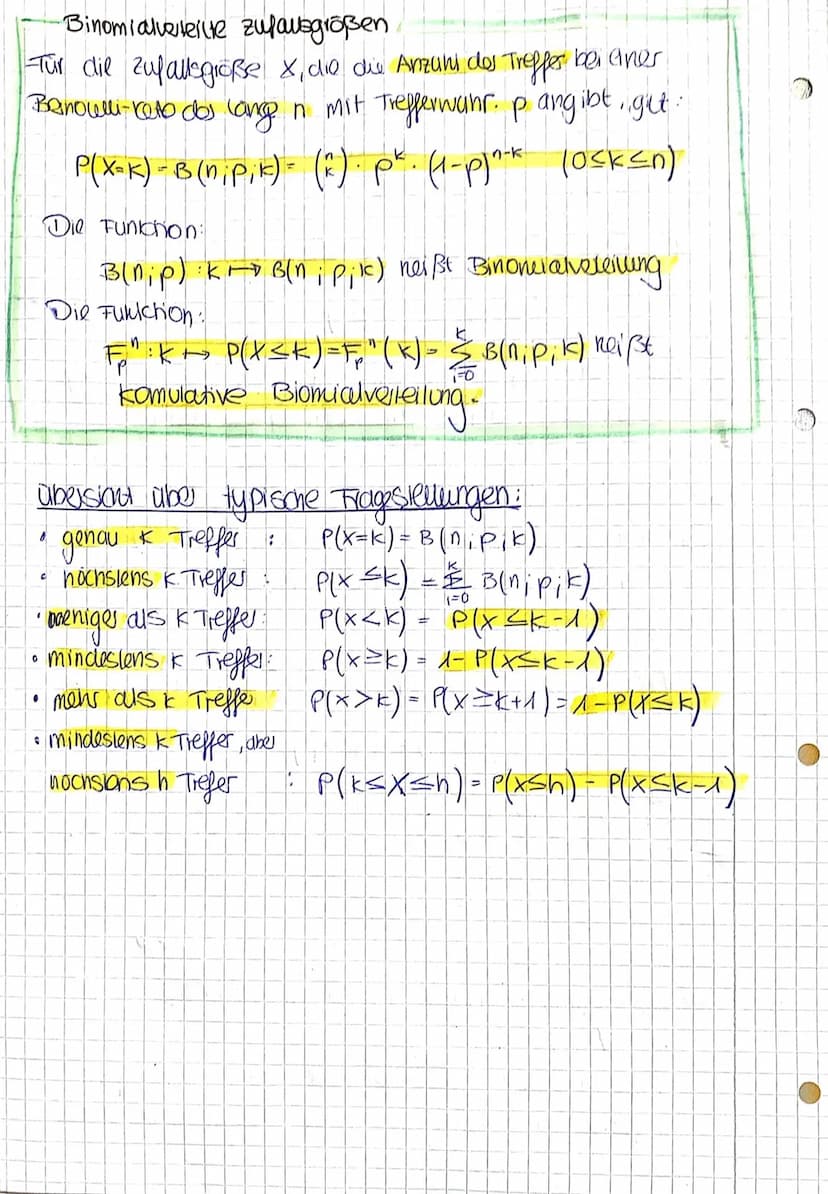 Binomialverteilte zufallsgrößen
Für die zufallsgröße X, die die Anzahl der Treffer bei einer
Bernoulli-kette der länge n mit Trefferwahr. p angibt, gilt:
P(X=k) = B(n;p;k) = (n k) · p^k · (1-p)^n-k (0≤k≤n)
Die Funktion:
B(n;p) : k ↦ B(n;p;k) heißt Binomialverteilung
Die Funktion:
F_p^n : k ↦ P(X≤k) = F_p^n(k) = Σ_{i=0}^k B(n;p;k) heißt
komulative Biomialverteilung.
übersicht über typische Fragestellungen:
• genau k Treffer : P(X=k) = B(n;p;k)
• höchstens k Treffer : P(X≤k) = Σ_{i=0}^k B(n;p;k)
• weniger als k Treffer: P(X<k) = P(X≤k-1)
• mindestens k Treffer: P(X≥k) = 1-P(X≤k-1)
• mehr als k Treffe P(X>k) = P(X≥k+1) = 1-P(X≤k)
• mindestens k Treffer, aber
höchstens h Trefer : P(k≤X≤h) = P(X≤h) - P(X≤k-1)